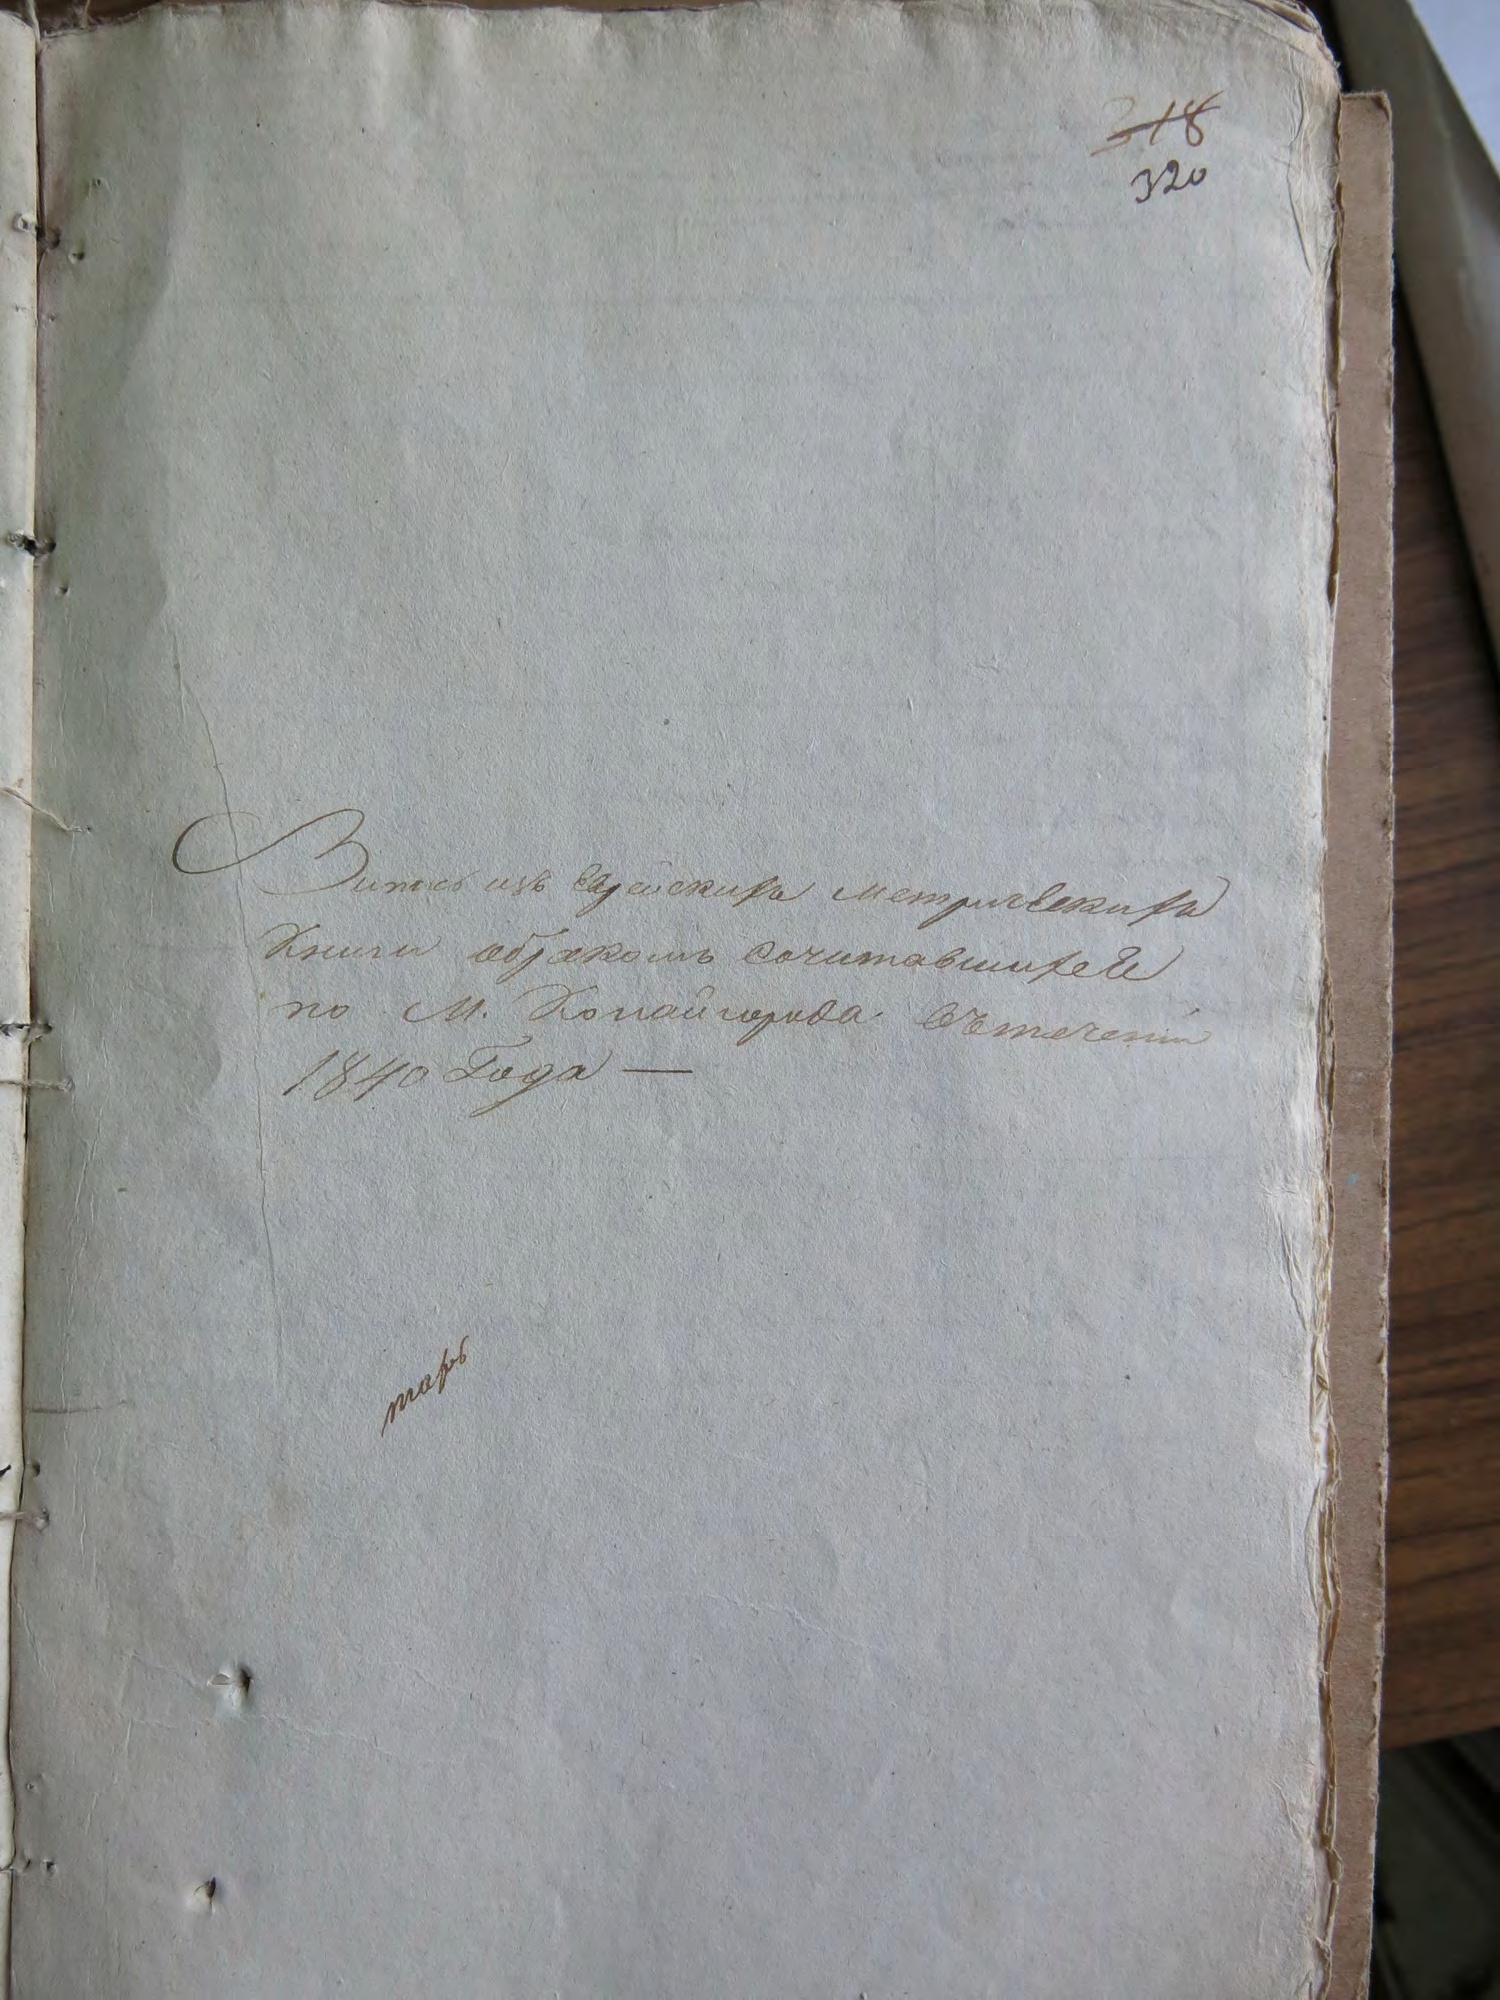 318
320
Випись изъ Еврейскихъ метрическихъ
Книги обракомъ сочитавшихся
по М. Копайгорода вътечении
1840 Года —
торъ